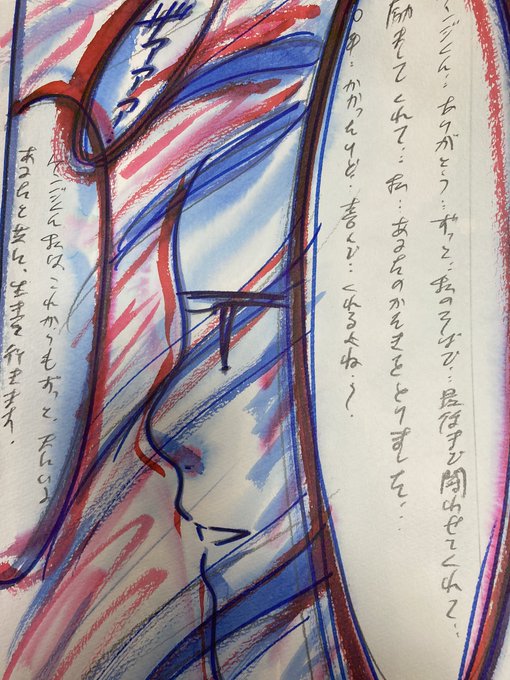 ンジくん…ありがとう…ずっと…私のそばで…最後まで闘わせてくれて…
励ましてくれて…私…あなたのかたきをとりました…
かかったけど…喜んで…くれるよね…
ザアアア
ケンジくん私は、これからもずっと、
あなたと共に、生きて行きます。